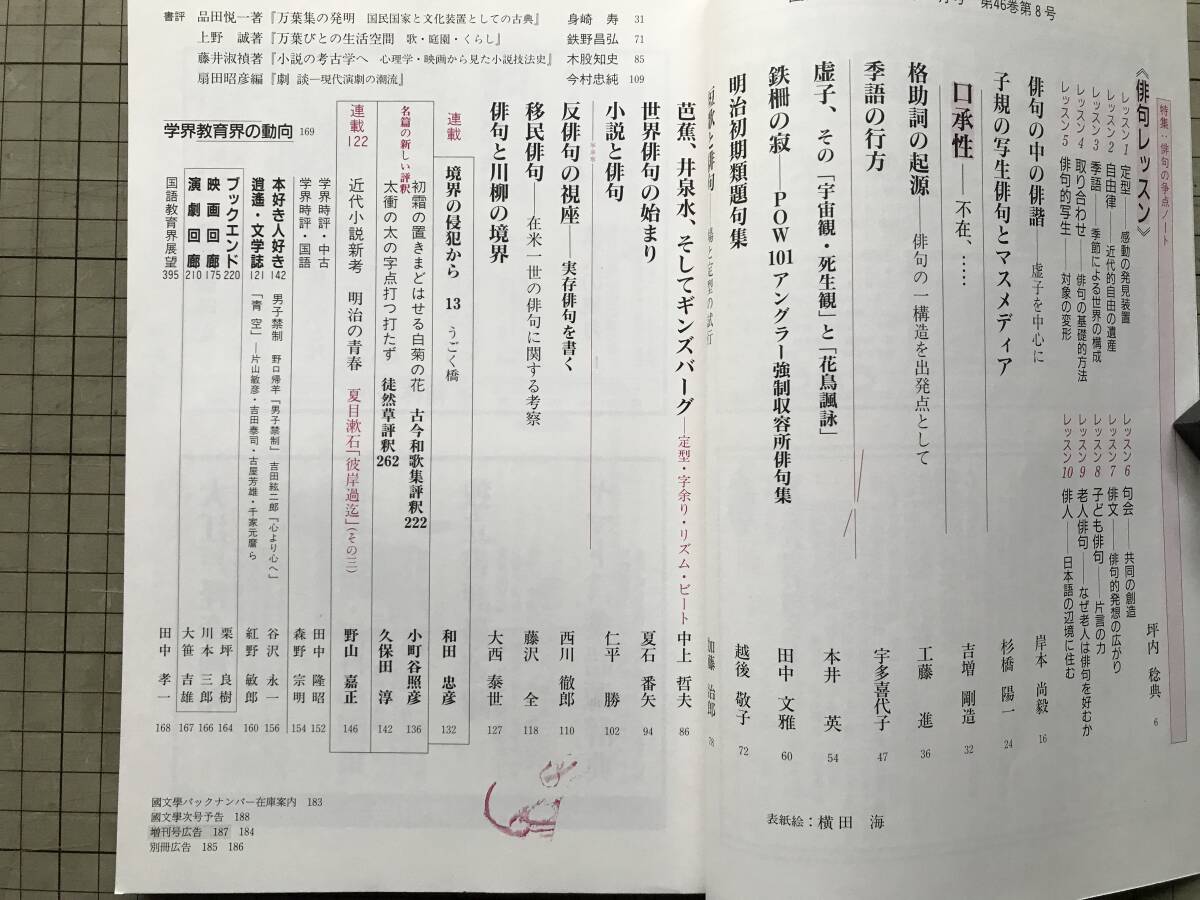 第46巻第8号
特集：俳句の争点ノート
《俳句レッスン》 坪内 稔典 6
レッスン1 定型――感動の発見装置
レッスン2 自由律――近代的自由の遺産
レッスン3 季語――季節による世界の構成
レッスン4 取り合わせ――俳句の基礎的方法
レッスン5 俳句的写生――対象の変形
レッスン6 句会――共同の創造
レッスン7 俳文――俳句的発想の広がり
レッスン8 子ども俳句――片言の力
レッスン9 老人俳句――なぜ老人は俳句を好むか
レッスン10 俳人――日本語の辺境に住む
俳句の中の俳諧 虚子を中心に 岸本 尚毅 16
子規の写生俳句とマスメディア 杉橋 陽一 24
口承性――不在、…… 吉増 剛造 32
格助詞の起源――俳句の一構造を出発点として 工藤 進 36
季語の行方 宇多喜代子 47
虚子、その「宇宙観・死生観」と「花鳥諷詠」 本井 英 54
鉄柵の寂――POW 101アングラー強制収容所俳句集 田中 文雅 60
明治初期類題句集 越後 敬子 72
短歌と俳句 定型の試行 加藤 治郎 78
芭蕉、井泉水、そしてギンズバーグ――定型・字余り・リズム・ビート 中上 哲夫 86
世界俳句の始まり 夏石 番矢 94
小説と俳句 仁平 勝 102
反俳句の視座――実存俳句を書く 西川 徹郎 110
移民俳句――在米一世の俳句に関する考察 藤沢 全 118
俳句と川柳の境界 大西 泰世 127
書評 品田悦一著『万葉集の発明 国民国家と文化装置としての古典』 身崎 寿 31
上野 誠著『万葉びとの生活空間 歌・庭園・くらし』 鉄野昌弘 71
藤井淑禎著『小説の考古学へ 心理学・映画から見た小説技法史』 木股知史 85
扇田昭彦編『劇談―現代演劇の潮流』 今村忠純 109
連載 境界の侵犯から 13 うごく橋 和田 忠彦 132
名篇の新しい評釈
初霜の置きまどはせる白菊の花 古今和歌集評釈222 小町谷照彦 136
太衝の太の字点打つ打たず 徒然草評釈262 久保田 淳 142
連載122 近代小説新考 明治の青春 夏目漱石「彼岸過迄」(その三) 野山 嘉正 146
学界教育界の動向 169
学界時評・中古 田中 隆昭 152
学界時評・国語 森野 宗明 154
本好き人好き 142 男子禁制 野口帰羊『男子禁制』 吉田絃二郎『心より心へ』 谷沢 永一 156
逍遙・文学誌 121 「青空」―片山敏彦・吉田泰司・古屋芳雄・千家元麿ら 紅野 敏郎 160
ブックエンド 220 栗坪 良樹 164
映画回廊 175 川本 三郎 166
演劇回廊 210 大笹 吉雄 167
国語教育界展望 395 田中 孝一 168
國文學バックナンバー在庫案内 183
國文學次号予告 188
増刊号広告 187 184
別冊広告 185 186
表紙絵：横田 海